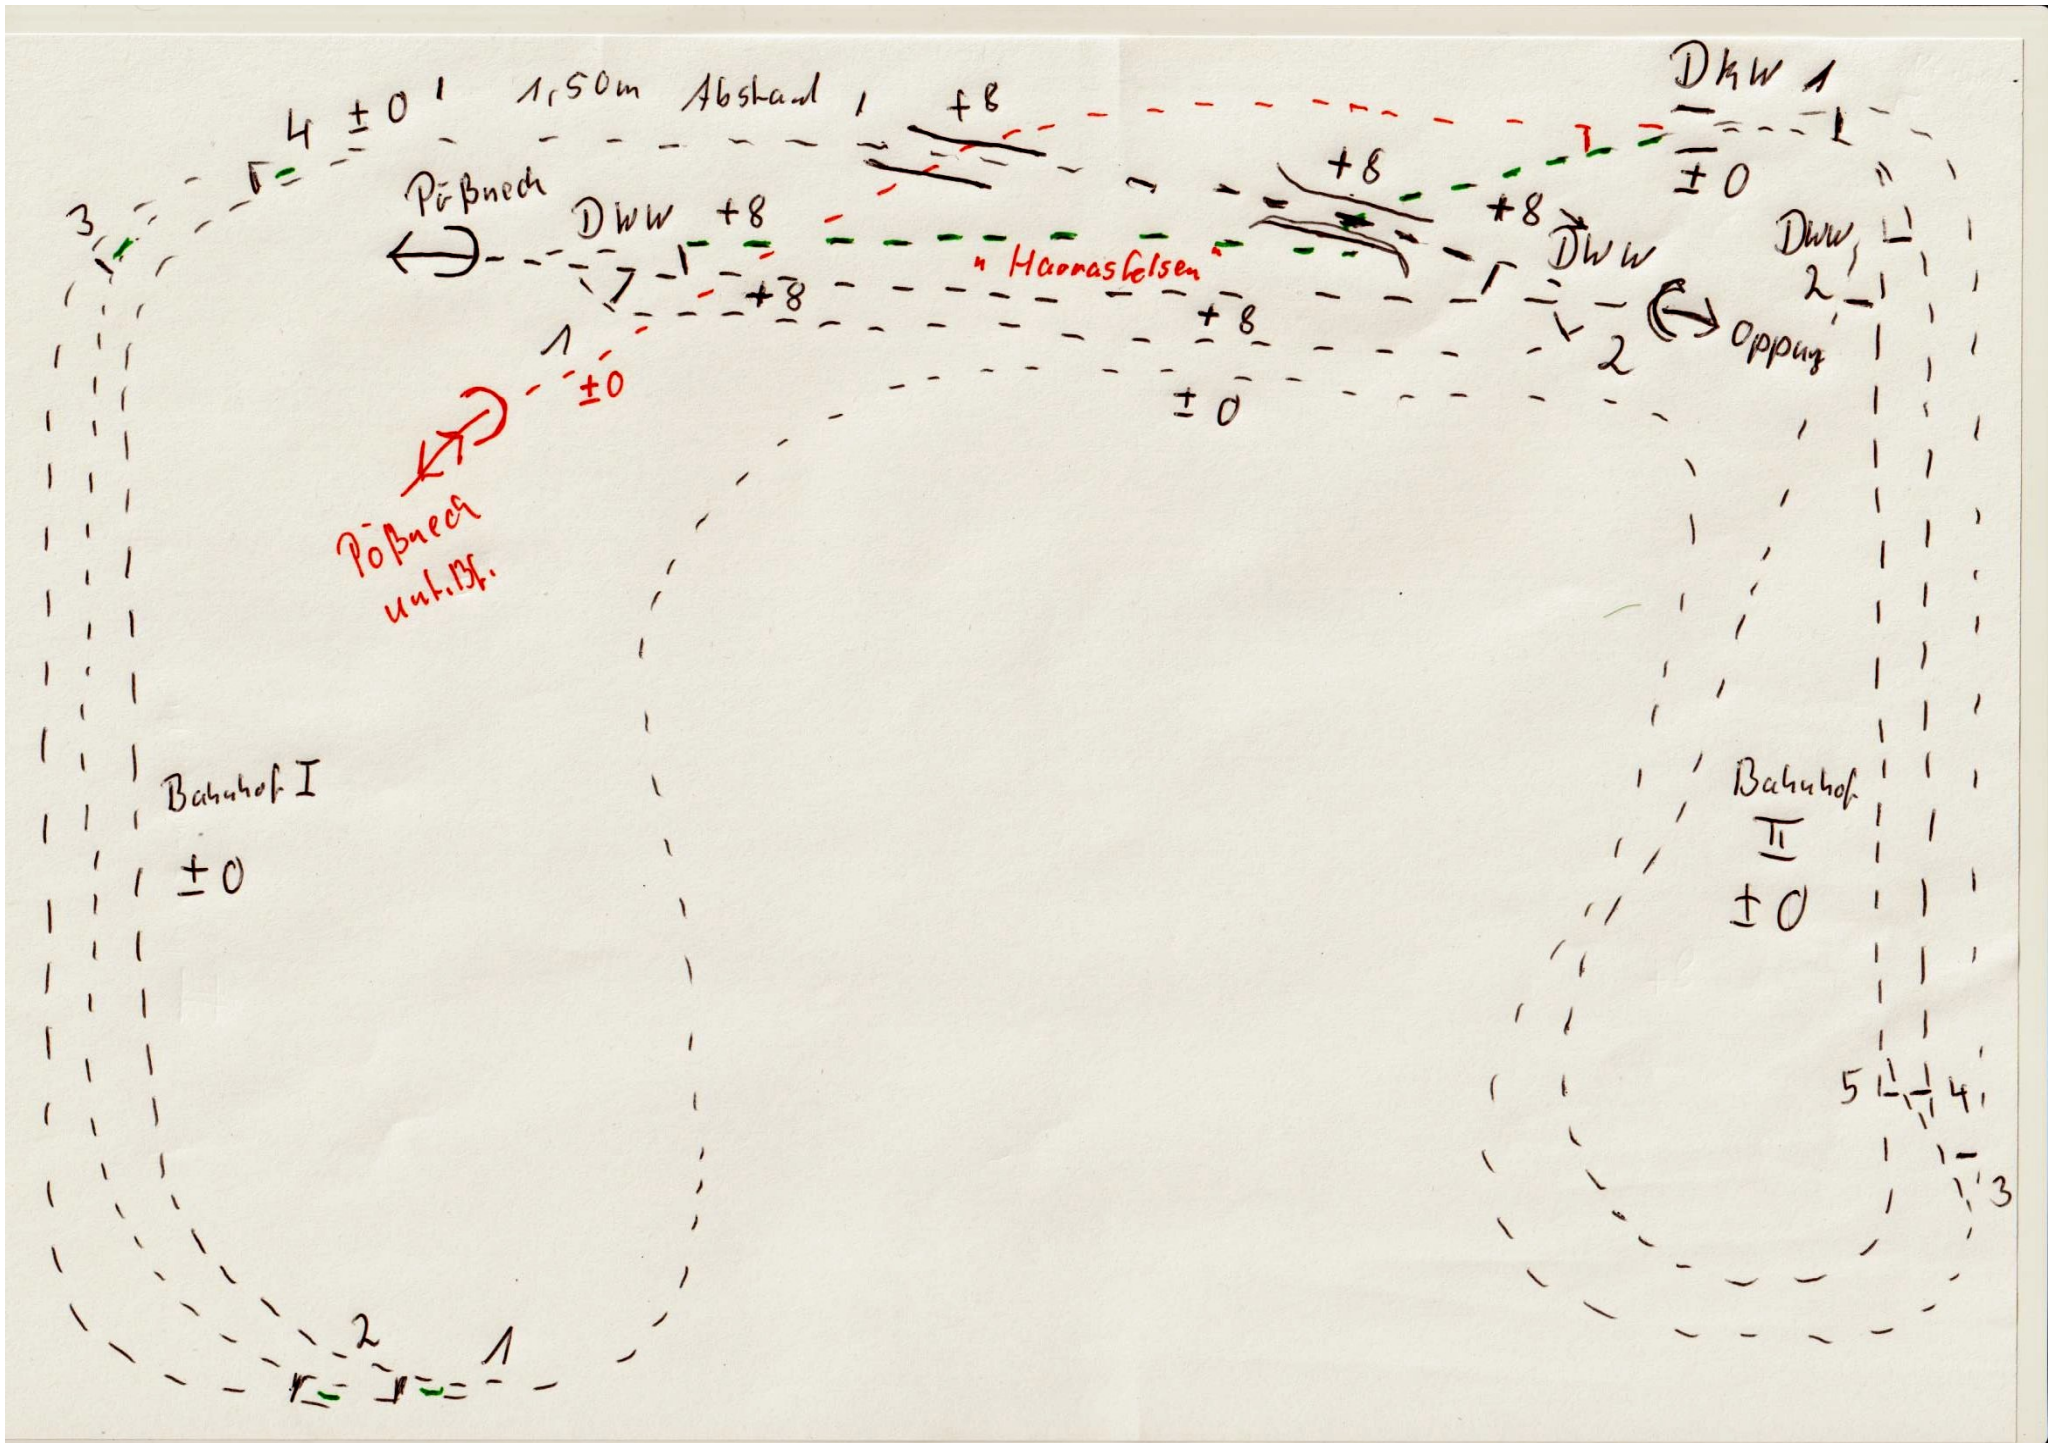 DKW 1
4 ±0
1,50m Abstand
+8
±0
3
Pößneck
DWW +8
+8
+8
DWW
DWW
2
"Haarasfelsen"
+8
+8
Oppurg
1
2
±0
±0
Pößneck
unt. Bf.
Bahnhof I
±0
Bahnhof
II
±0
5
4
3
2
1